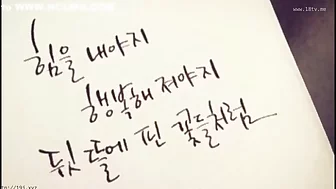 www.18tv.me
힘을 내야지
행복해져야지
뒷뜰에 핀 꽃들처럼